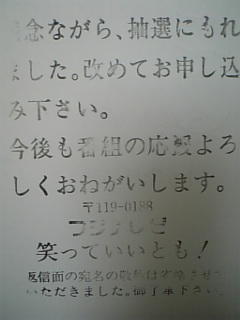 念ながら、抽選にもれ
ました。改めてお申し込
み下さい。
今後も番組の応援よろ
しくおねがいします。
〒119-0188
フジテレビ
笑っていいとも！
返信面の宛名の敬称は省略させて
いただきました。御了承下さい。